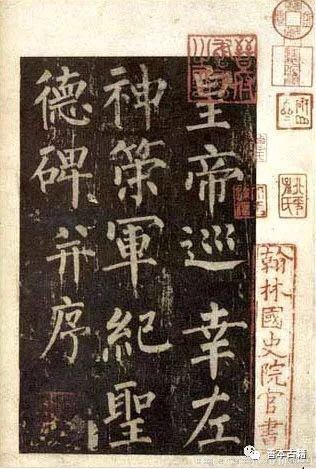 皇帝巡幸左
神策軍紀聖
德碑并序
翰林國史院官書
百年古籍